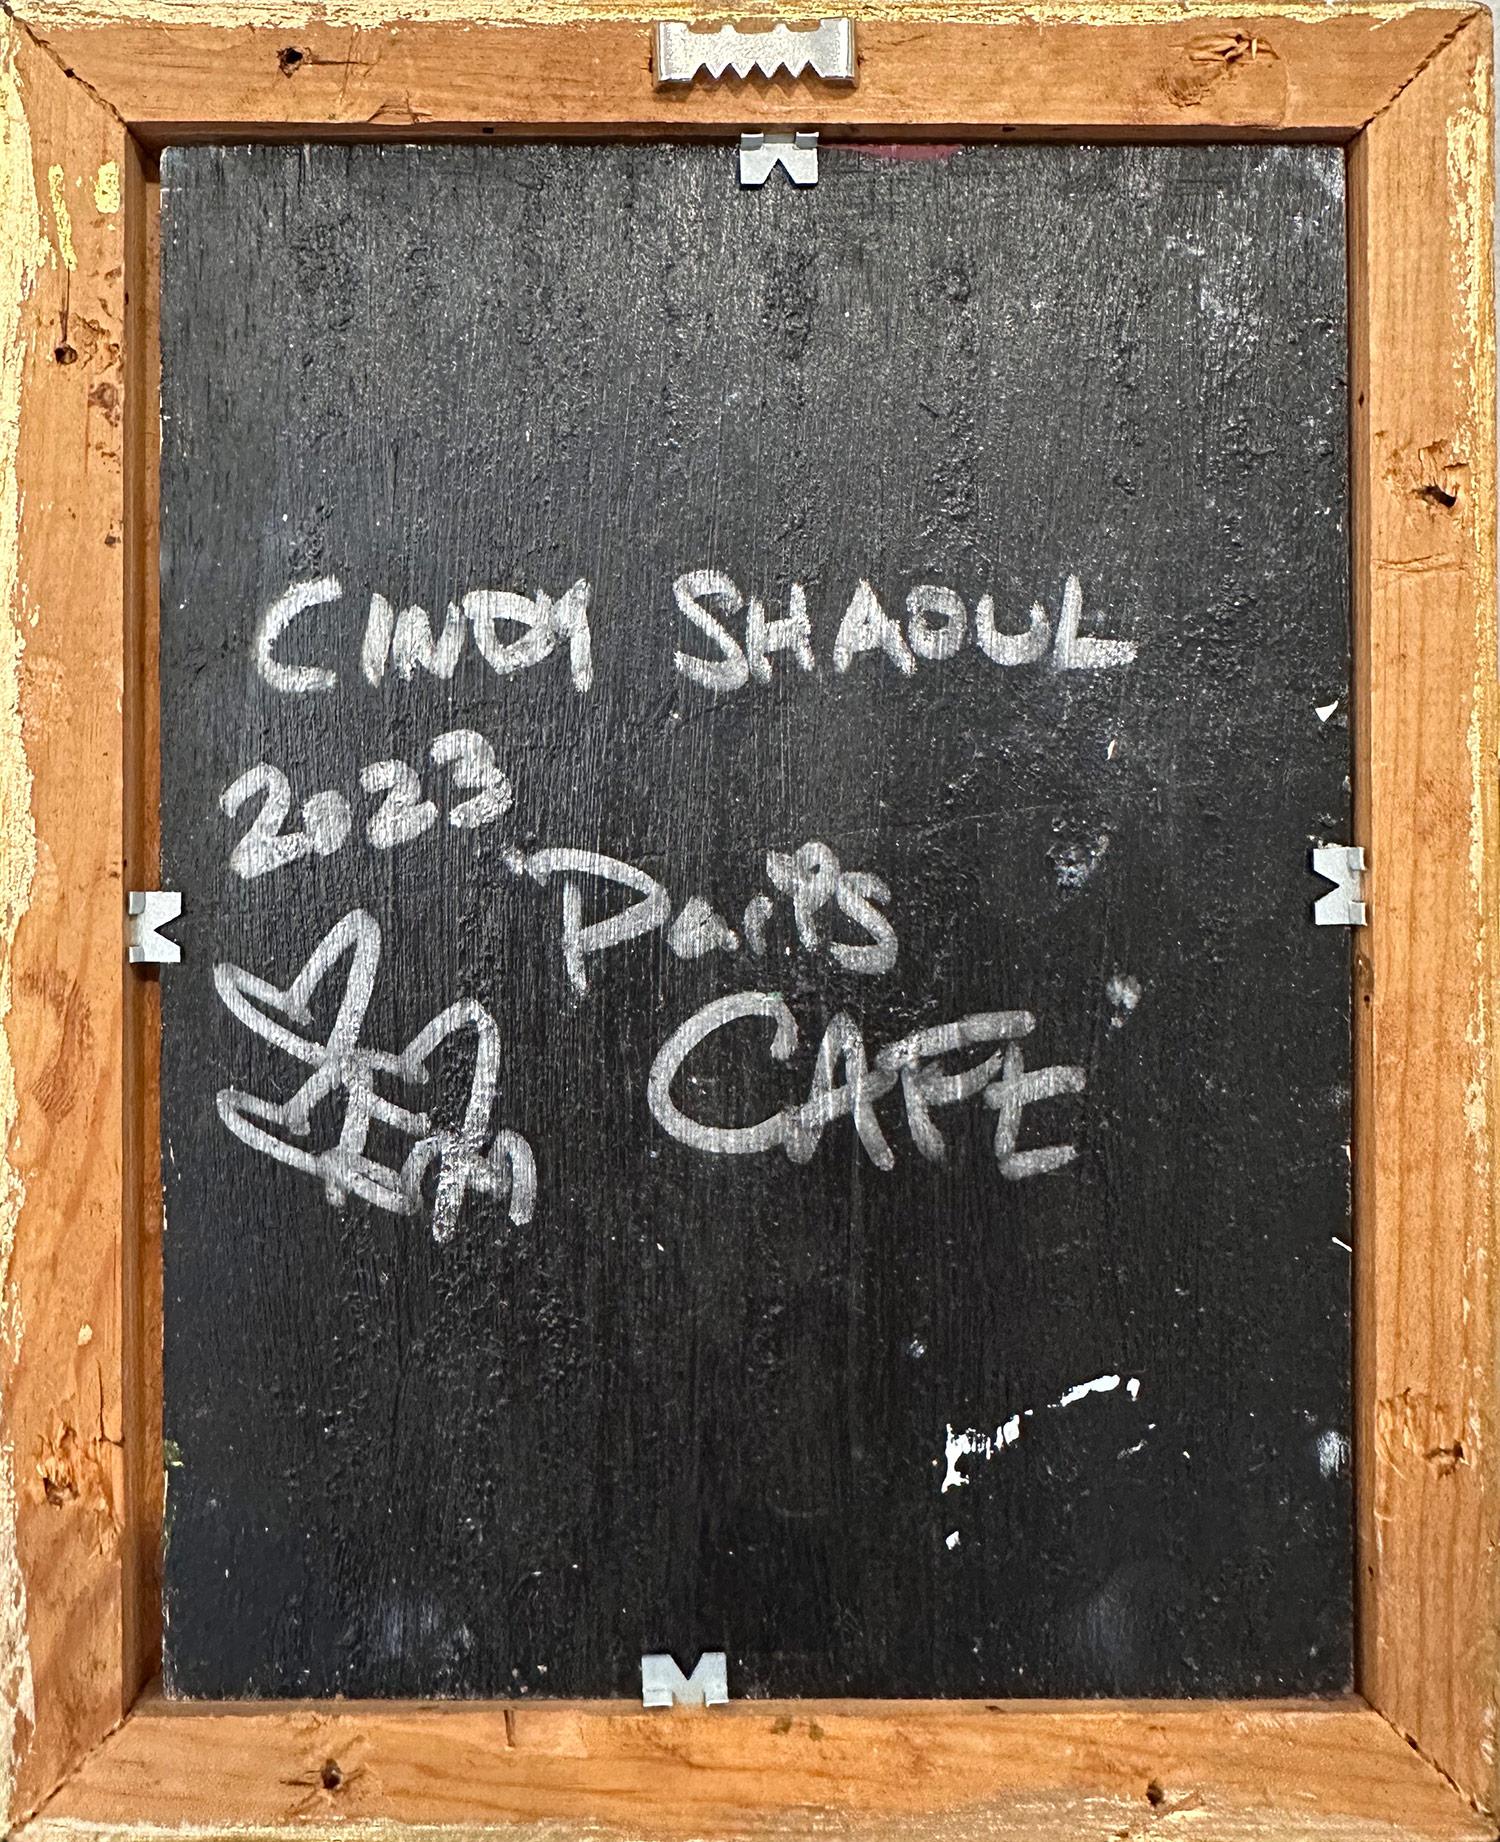 CINDY SHAOUL
2023
"Paris
CAFE